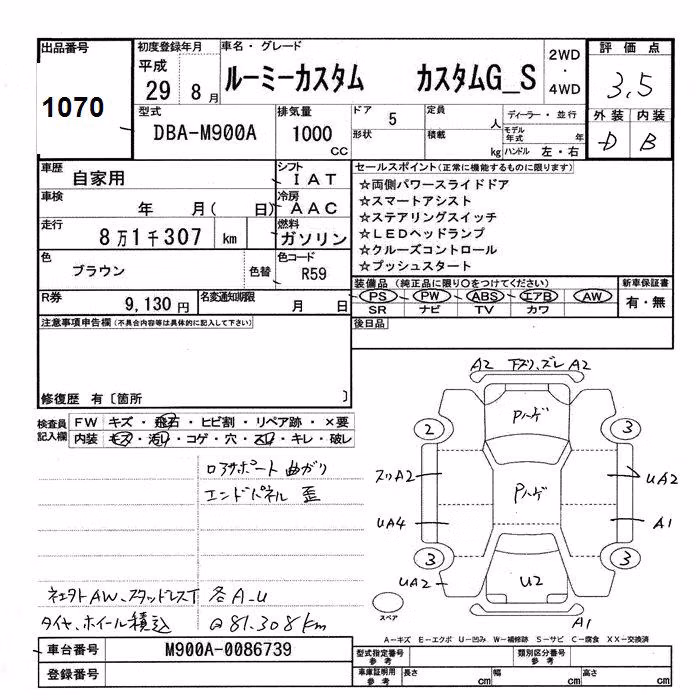 出品番号
1070
初度登録年月
平成
29 8月
車名・グレード
ルーミーカスタム カスタムG_S
2WD
・
4WD
評価点
3.5
外装 内装
D B
型式
DBA-M900A
排気量
1000
CC
ドア
5
形状
定員
人
積載
kg
ディーラー・並行
モデル年式 年
ハンドル 左・右
車歴
自家用
シフト
IAT
車検
年 月( 日)
冷房
AAC
走行
8万1千307 km
燃料
ガソリン
色
ブラウン
色替
色コード
R59
R券
9,130円
名変通知期限
月 日
セールスポイント(正常に機能するものに限ります)
☆両側パワースライドドア
☆スマートアシスト
☆ステアリングスイッチ
☆LEDヘッドランプ
☆クルーズコントロール
☆プッシュスタート
装備品 (純正品に限り〇をつけてください)
PS PW ABS エアB AW
SR ナビ TV カワ
新車保証書
有・無
後日品
注意事項申告欄(不具合内容等は具体的に記入して下さい)
修復歴 有〔箇所 〕
検査員
記入欄
FW キズ・飛石・ヒビ割・リペア跡・×要
内装 キズ・汚れ・コゲ・穴・スレ・キレ・破レ
ロアサポート 曲がり
エンドパネル 歪
ネェクトAW、スタッドレスT 各A-U
タイヤ、ホイール積込 @81.308km
A2 下スリ、ズレ A2
Pハゲ
2 3
スリA2 UA2
Pハゲ
UA4 A1
3 3
UA2 U2
A1
スペア
A-キズ E-エクボ U-凹み W-補修跡 S-サビ C-腐食 XX-交換済
車台番号
M900A-0086739
登録番号
型式指定番号
参考
類別区分番号
参考
車庫証明用
参考
長さ cm 幅 cm 高さ cm